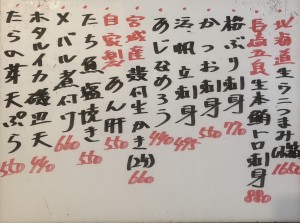 北海道生ウニつまみ
長崎五島生本鮪トロ刺身 880
梅ぶり刺身 770
かつお刺身 550
活帆立刺身 495
あじなめろう 440
宮城産殻付生かき(2ヶ) 660
自家製あん肝 550
たち魚塩焼き 550
メバル煮付け 660
ホタルイカ磯辺天 440
たらの芽天ぷら 550